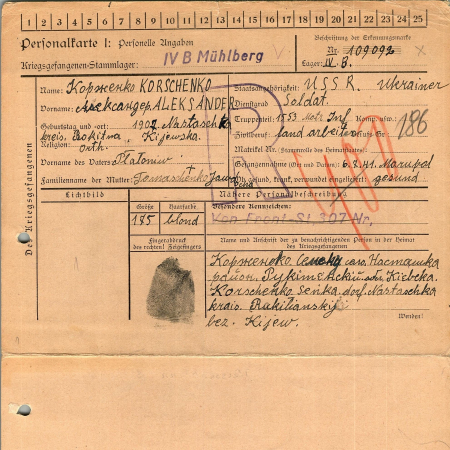 1 2 3 4 5 6 7 8 9 10 11 12 13 14 15 16 17 18 19 20 21 22 23 24 25
Personalkarte I: Personelle Angaben
Kriegsgefangenen-Stammlager:
IV B Mühlberg
Beschriftung der Erkennungsmarke
Nr. 109092
Lager: IV. B.
Des Kriegsgefangenen
Name: Корженко KORSCHENKO
Vorname: Александер. ALEKSANDER
Geburtstag und -ort: 1907 Nastaschka
kreis. Rokitna, Kijewska.
Religion: Orth.
Vorname des Vaters: Platoniw
Familienname der Mutter: Tomaschenko
Staatsangehörigkeit: USSR. Ukrainer
Dienstgrad: Soldat.
Truppenteil: 1553 Inf. Komp. usw.:
Zivilberuf: landarbeiter
186
Matrikel Nr. (Stammrolle des Heimatstaates):
Gefangennahme (Ort und Datum): 6.8.41.
Ob gesund, krank, verwundet eingeliefert: gesund
Lichtbild
Nähere Personalbeschreibung
Größe
Haarfarbe
Besondere Kennzeichen:
185
blond
Von Front-St. 307 Nr.
Fingerabdruck
des rechten! Zeigefingers
Name und Anschrift der zu benachrichtigenden Person in der Heimat
des Kriegsgefangenen
Корженко село Насташка
район.
Korschenko Senka. dorf. Nastaschka
krais. Rakilianskij
bez. Kijew.
Wenden!